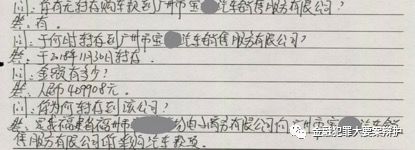 问：你有无转存购车款到广州市宝 汽车销售服务有限公司？
答：有。
问：于何时转存到广州市宝 汽车销售服务有限公司？
答：于2018年11月30日转存。
问：金额有多少？
答：人民币409908元。
问：你为何转存到该公司？
答：是我福建省福州市 电子商务有限公司向广州市宝 汽车销
售服务有限公司的采购汽车款项。
金融犯罪大要案辩护